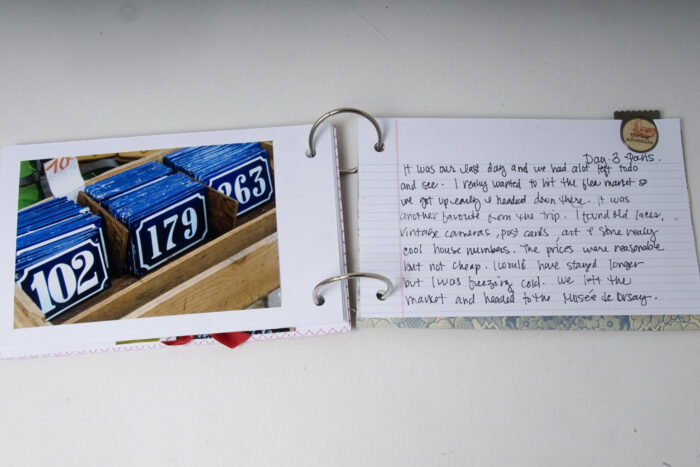 10
102
179
263
Day 3 Paris.
It was our last day and we had alot left todo
and see. I really wanted to hit the flea market so
we got up early & headed down there. It was
another favorite from the trip. I found old laces,
vintage cameras, post cards, art & some really
cool house numbers. The prices were reasonable
but not cheap. I would have stayed longer
but I was freezing cold. We left the
market and headed to the Museé de Orsay.
adventure